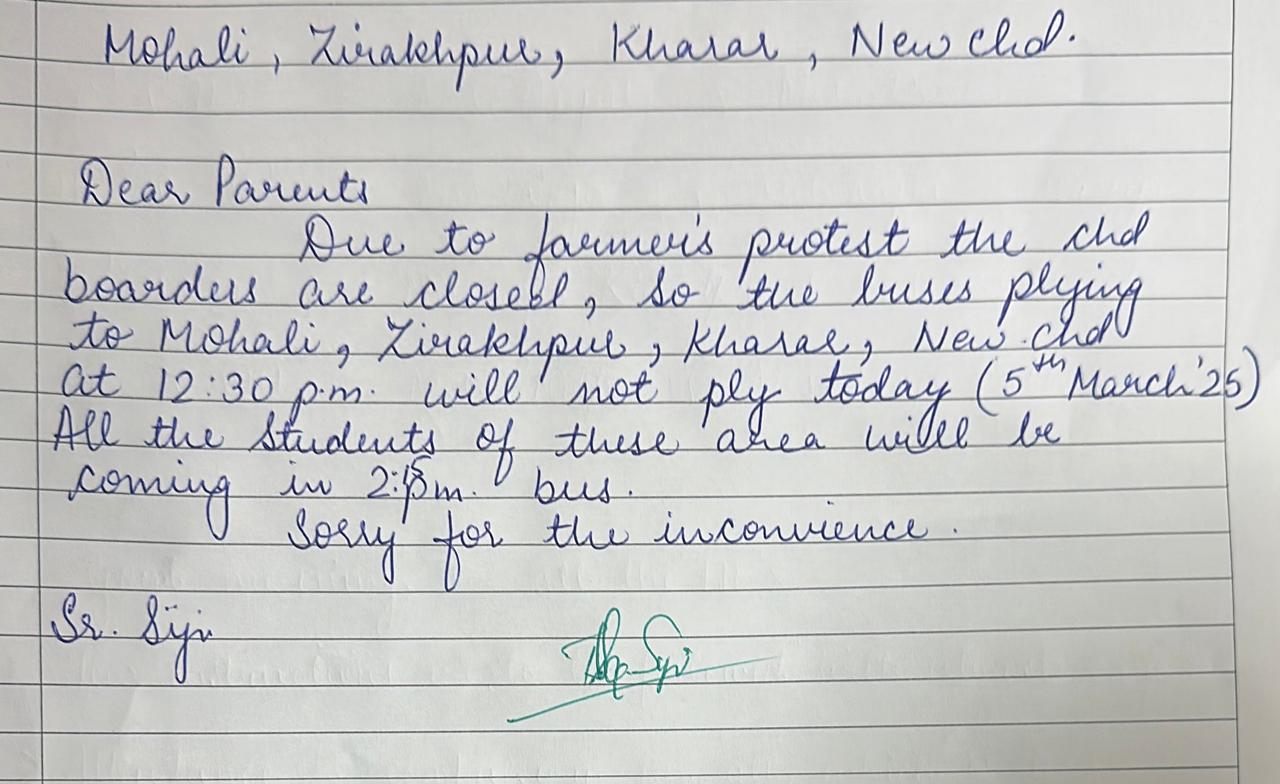 Mohali, Zirakhpur, Kharar, New Chd.
Dear Parents
Due to farmer's protest the chd
boarders are closed, so the buses plying
to Mohali, Zirakhpur, Kharar, New Chd
at 12:30 p.m. will not ply today (5th March'25)
All the students of these area will be
coming in 2:15m. bus.
Sorry for the inconvience.
Sr. Siji